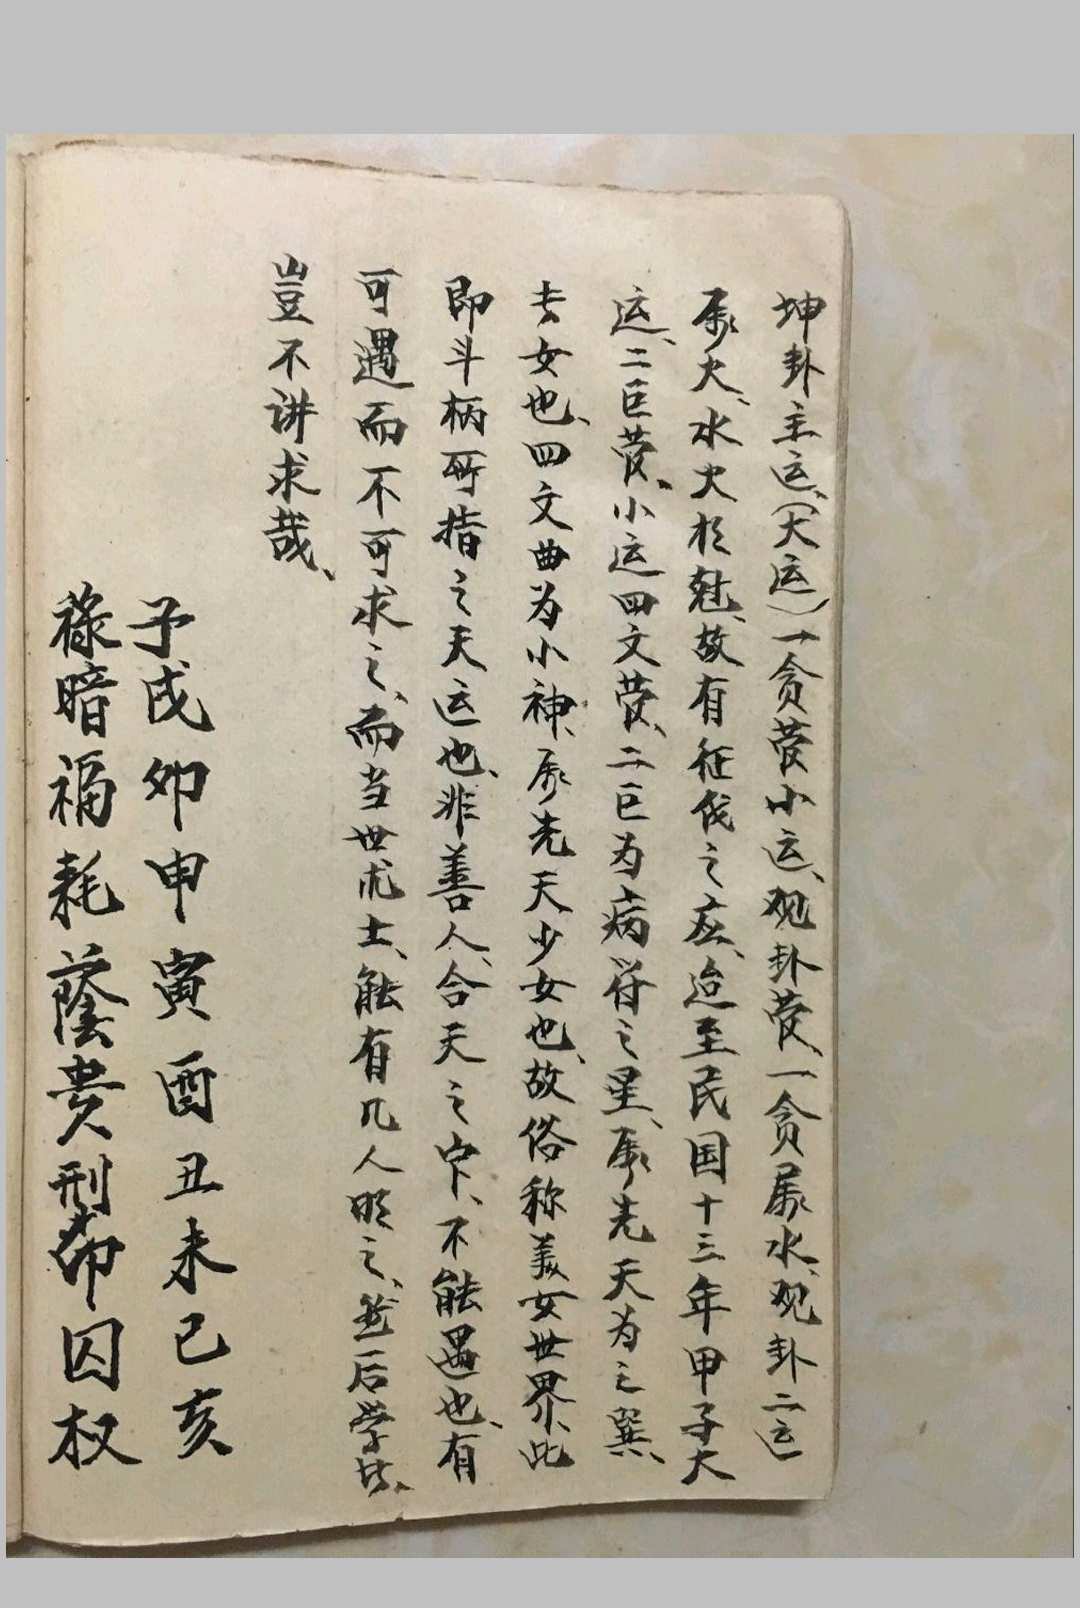 坤卦主运、(大运)一贪管小运、观卦管、一贪属水、观卦二运
属火、水火相尅、故有征伐之应、迨至民国十三年甲子大
运、二巨管、小运四文管、二巨为病符之星、属先天为之巽、
长女也、四文曲为小神、属先天少女也、故俗称美女世界、此
即斗柄所指之天运也、非善人、合天之中、不能遇也、有
可遇而不可求之、而当世术士、能有几人明之、然后学者、
豈不讲求哉、
子戌卯申寅酉丑未巳亥
禄暗福耗蔭贵刑印囚权